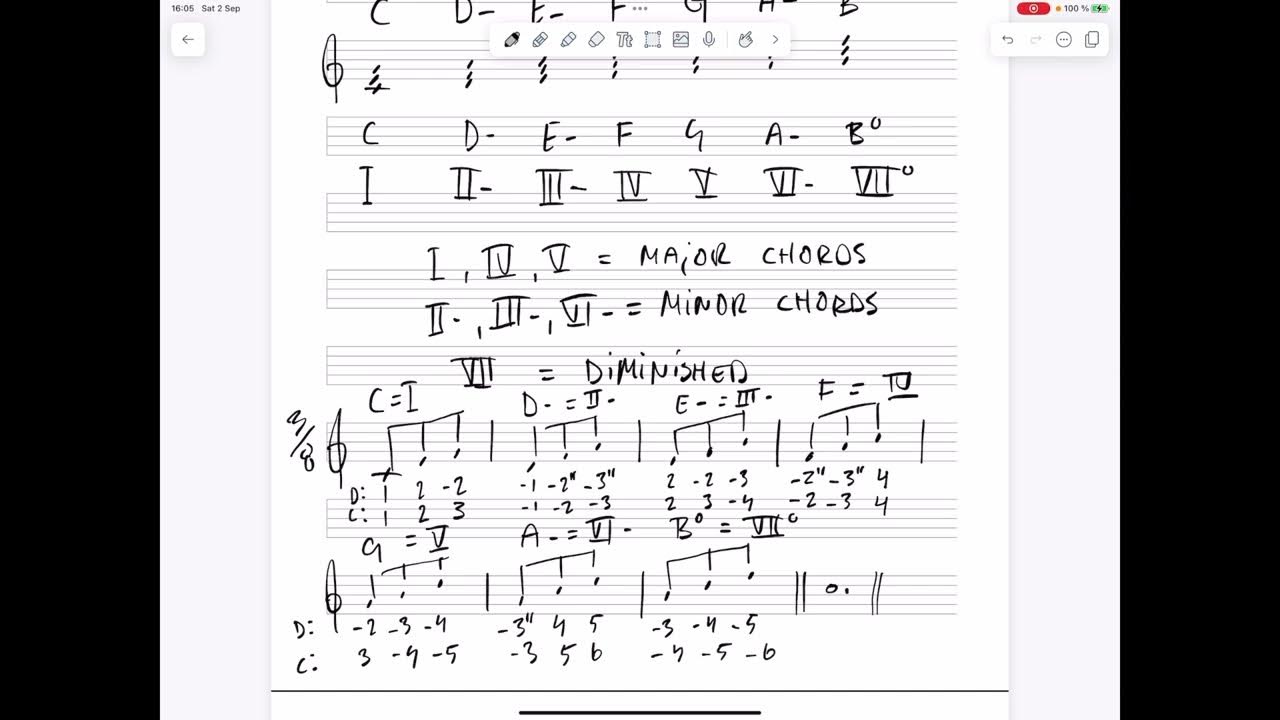 16:05 Sat 2 Sep
100 %
C D- E- F G A- B
Tt
C D- E- F G A- B°
I II- III- IV V VI- VII°
I, IV, V = MAJOR CHORDS
II-, III-, VI- = MINOR CHORDS
VII = DIMINISHED
C=I D-=II- E-=III- F=IV
3/8
D: 1 2 -2 -1 -2" -3" 2 -2 -3 -2" -3" 4
C: 1 2 3 -1 -2 -3 2 3 -4 -2 -3 4
G=V A-=VI- B°=VII°
D: -2 -3 -4 -3" 4 5 -3 -4 -5
C: 3 -4 -5 -3 5 6 -4 -5 -6